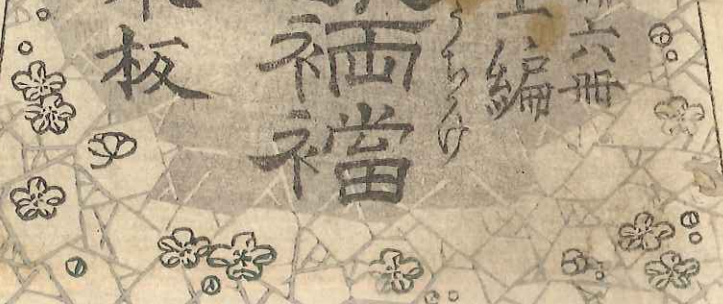 六冊
上編
うちかけ
裲襠
板